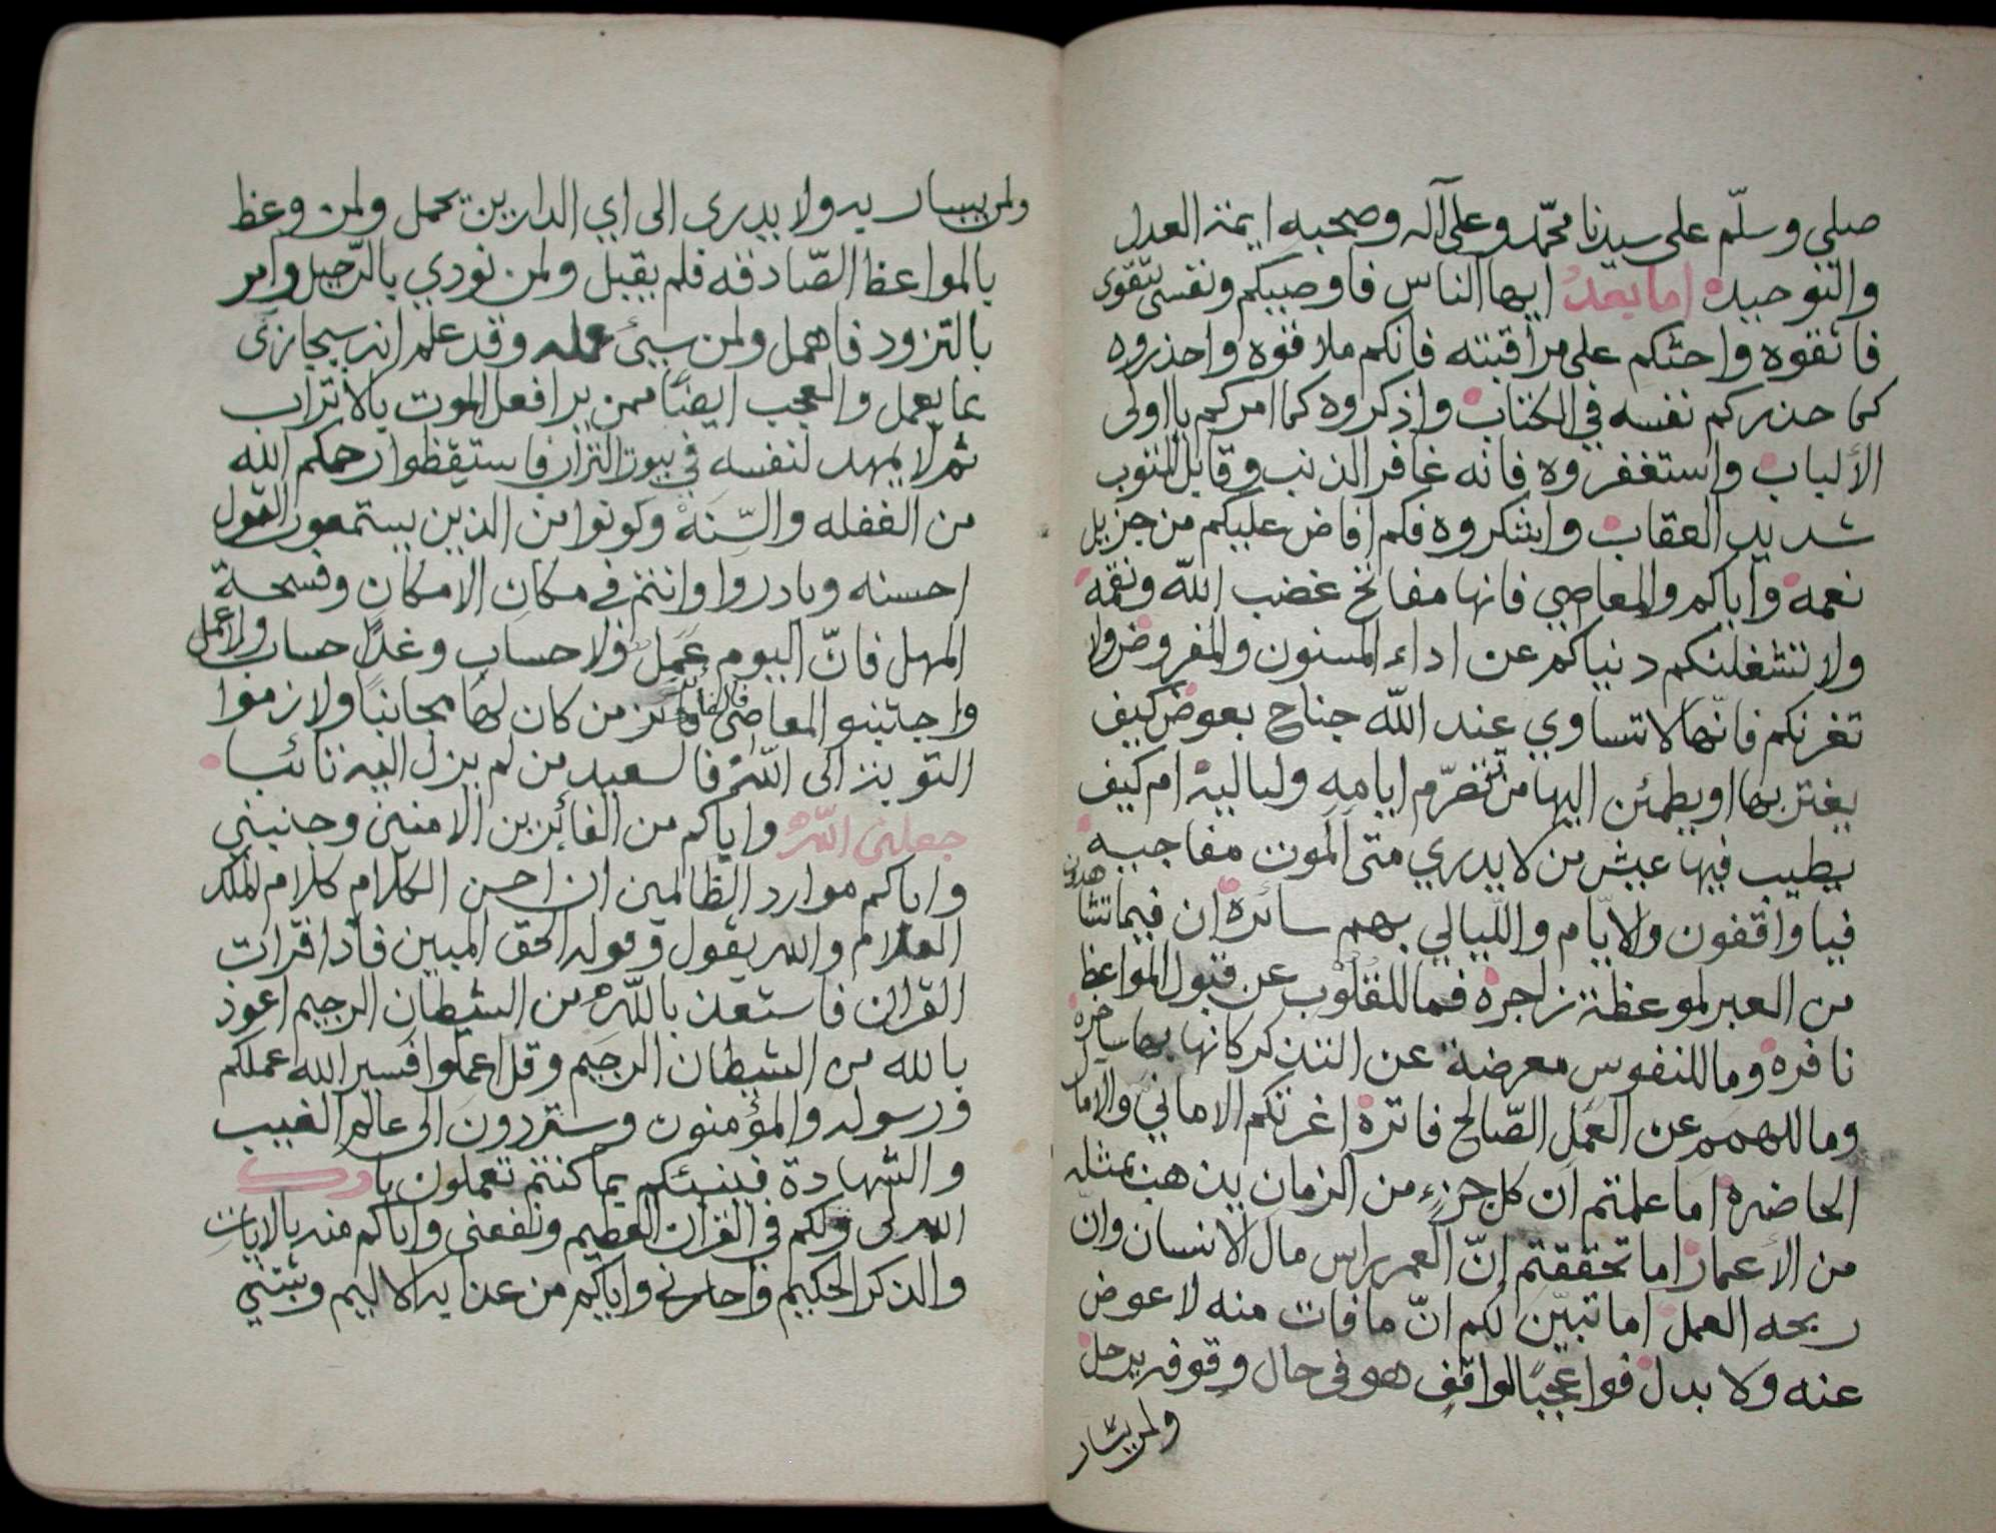 صلي وسلّم على سيدنا محمّد وعلى آله وصحبه ايمة العدل
والتوحيد اما بعد ايها الناس فاوصيكم ونفسي بتقوى
فاتقوه واحثكم على مراقبته فانكم ملاقوه واحذروه
كما حذركم نفسه في الكتاب واذكروه كما امركم يا اولى
الألباب واستغفروه فانه غافر الذنب وقابل التوب
شديد العقاب واشكروه فكم افاض عليكم من جزيل
نعمه واياكم والمعاصي فانها مفاتح غضب الله ونقمه
ولا تشغلنكم دنياكم عن اداء المسنون والمفروض ولا
تغرنكم فانها لا تساوي عند الله جناح بعوض كيف
يغتر بها او يطمئن اليها من تتصرّم ايامه ولياليه ام كيف
يطيب فيها عيش من لا يدري متى الموت مفاجيه
فيا واقفون والايّام واللّيالي بهم سائرة ان فيما تشاهدون
من العبر لموعظة زاجرة فما للقلوب عن قبول المواعظ
نافرة وما للنفوس معرضة عن التذكر كانها بها ساخرة
وما للهمم عن العمل الصّالح فاترة اغرتكم الاماني والامال
الحاضرة اما علمتم ان كل جزء من الزمان يذهب بمثله
من الأعمار اما تحققتم إنّ العمر براس مال الانسان وانّ
ربحه العمل اما تبيّن لكم انّ ما فات منه لا عوض
عنه ولا بدل فوا عجبًا لواقف هو في حال وقوفه يرحل
ولمن يسار
ولمن يسار به ولا يدرى الى اي الدارين يحمل ولمن وعظ
بالمواعظ الصّادقه فلم يقبل ولمن نودي بالرّحيل وامر
بالتزود فاهمل ولمن سيئ عمله وقد علم انه سيجازى
بما يعمل والعجب ايضًا ممن يرا فعل الموت بالاتراب
ثم لا يمهد لنفسه في بيوت التراب فاستيقظوا رحمكم الله
من الغفله والسّنة وكونوا من الذين يستمعون القول
احسنه وبادروا وانتم في مكان الامكان وفسحة
المهل فانّ اليوم عمل ولا حساب وغدًا حساب ولا عمل
واجتنبو المعاصي فالفائز من كان لها مجانبًا ولازموا
التوبة الى الله فالسعيد من لم يزل اليه تائبا
جعلني الله واياكم من الفائزين الامنين وجنبني
واياكم موارد الظالمين ان احسن الكلام كلام الملك
العلام والله يقول وقوله الحق المبين فاذا قرات
القران فاستعذ بالله من الشيطان الرجيم اعوذ
بالله من الشيطان الرجيم وقل اعملوا فسيرا الله عملكم
ورسوله والمؤمنون وستردون الى عالم الغيب
والشهادة فينبئكم بما كنتم تعملون بارك
الله لى ولكم في القران العظيم ونفعني واياكم منه بالايات
والذكر الحكيم واجارني واياكم من عذابه الاليم وثبتني